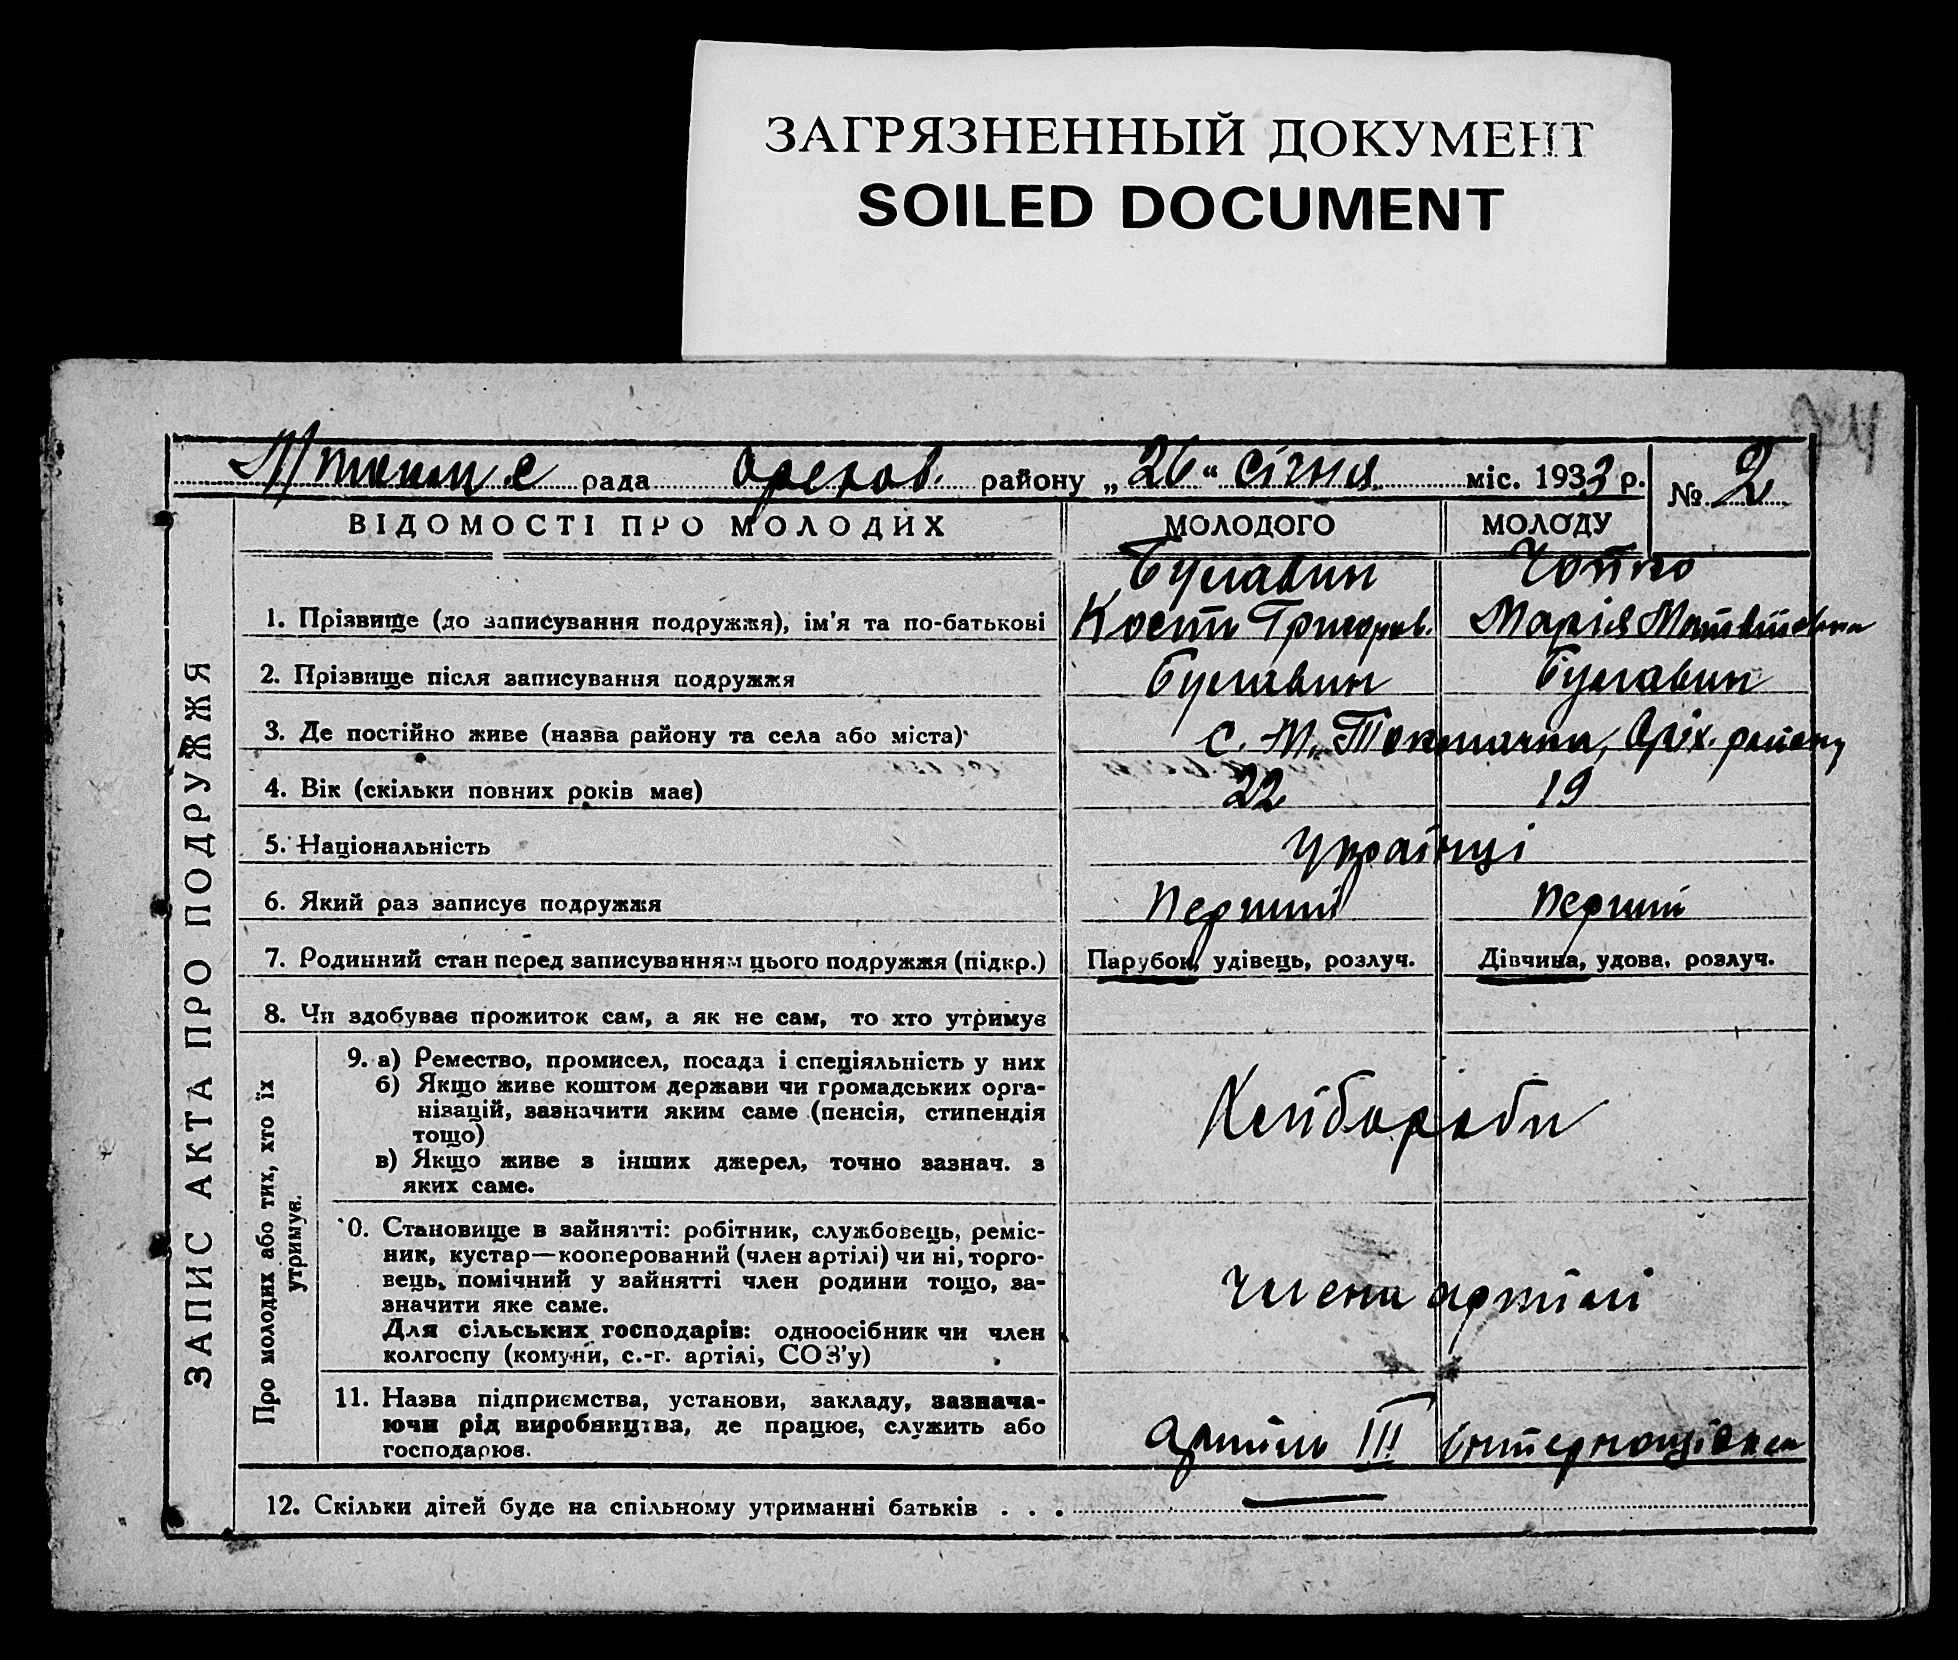 ЗАГРЯЗНЕННЫЙ ДОКУМЕНТ
SOILED DOCUMENT
рада Орехов. району „26“ січня міс. 1933 р. № 2
ВІДОМОСТІ ПРО МОЛОДИХ МОЛОДОГО МОЛОДУ
Булавин
1. Прізвище (до записування подружжя), ім'я та по-батькові Кость Григоров. Марія Матвіївна
2. Прізвище після записування подружжя Булавин Булавин
3. Де постійно живе (назва району та села або міста) с. М. Токмачка, Оріх. району
4. Вік (скільки повних років має) 22 19
5. Національність Українці
6. Який раз записує подружжя Перший Перший
7. Родинний стан перед записуванням цього подружжя (підкр.) Парубок, удівець, розлуч. Дівчина, удова, розлуч.
8. Чи здобуває прожиток сам, а як не сам, то хто утримує
9. а) Ремество, промисел, посада і спеціяльність у них
б) Якщо живе коштом держави чи громадських орга-
нізацій, зазначити яким саме (пенсія, стипендія
тощо)
Хлібороби
в) Якщо живе з інших джерел, точно зазнач. з
яких саме.
10. Становище в зайнятті: робітник, службовець, реміс-
ник, кустар—кооперований (член артілі) чи ні, торго-
вець, помічний у зайнятті член родини тощо, за-
значити яке саме.
Члени артілі
Для сільських господарів: одноосібник чи член
колгоспу (комуни, с.-г. артілі, СОЗ'у)
11. Назва підприємства, установи, закладу, зазнача-
ючи рід виробництва, де працює, служить або
господарює.
Артіль III Інтернаціонал
12. Скільки дітей буде на спільному утриманні батьків . . . —
ЗАПИС АКТА ПРО ПОДРУЖЖЯ
Про молодих або тих, хто їх
утримує.